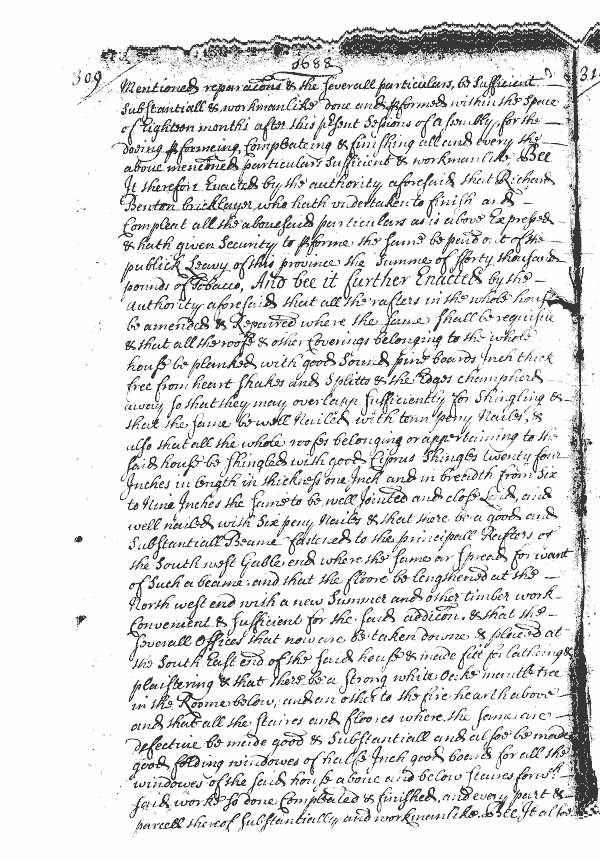 309
1688
31
Mentioned reparacions & the severall particulars, be Sufficient
Substantiall & workmanlike done and pformed within the Space
of Eighteen months after this psent Sessions of assembly, for the
doeing pformeing Compleating & finishing all and every the
above menconed particulars Sufficient & workmanlike Bee
It therefore Enacted by the authority aforesaid that Richard
Benton bricklayer who hath undertaken to finish and
Compleat all the abovesaid particulars as is above Expressed
& hath given Security to pforme the same be paid out of the
publick Leavy of this province the Summe of fforty thousand
pounds of Tobacco, And bee it further Enacted by the
Authority aforesaid that all the rafters in the whole house
be amended & Repaired where the same shall be requisite
& that all the roofe & other Coverings belonging to the whole
house be planked with good Sound pine boards Inch thick
free from heart Shakes and Splitts & the Edges champherd
away so that they may overlapp sufficiently for Shingling &
that the same be well Nailed with tenn peny Nailes, &
also that all the whole roofes belonging or appertaining to the
said house be Shingled with good Ciprus Shingles twenty four
Inches in Length in thickness one Inch and in breadth from Six
to Nine Inches the same to be well Jointed and close Laid, and
well nailed with Six peny Nailes & that there be a good and
Substantiall Beame fastened to the principall Rafters of
the South west Gable end where the same ar Spread for want
of Such a beame and that the floore be lengthened at the
North west end with a new Summer and other timber work
Convenient & sufficient for the said addicon, & that the
severall Offices that now are be taken downe & placed at
the South East end of the said house & made fitt for lathing &
plaistering & that there be a Strong white Oake mantle tree
in the Roome below, and an other to the fire hearth above
and that all the staires and floores where the same are
defective be made good & Substantiall and alsoe be made
good folding windowes of halfe Inch good boards for all the
windowes of the said house above and below staires for wch
said worke so done Compleated & finished, and every part &
parcell thereof substantially and workmanlike. Bee It also